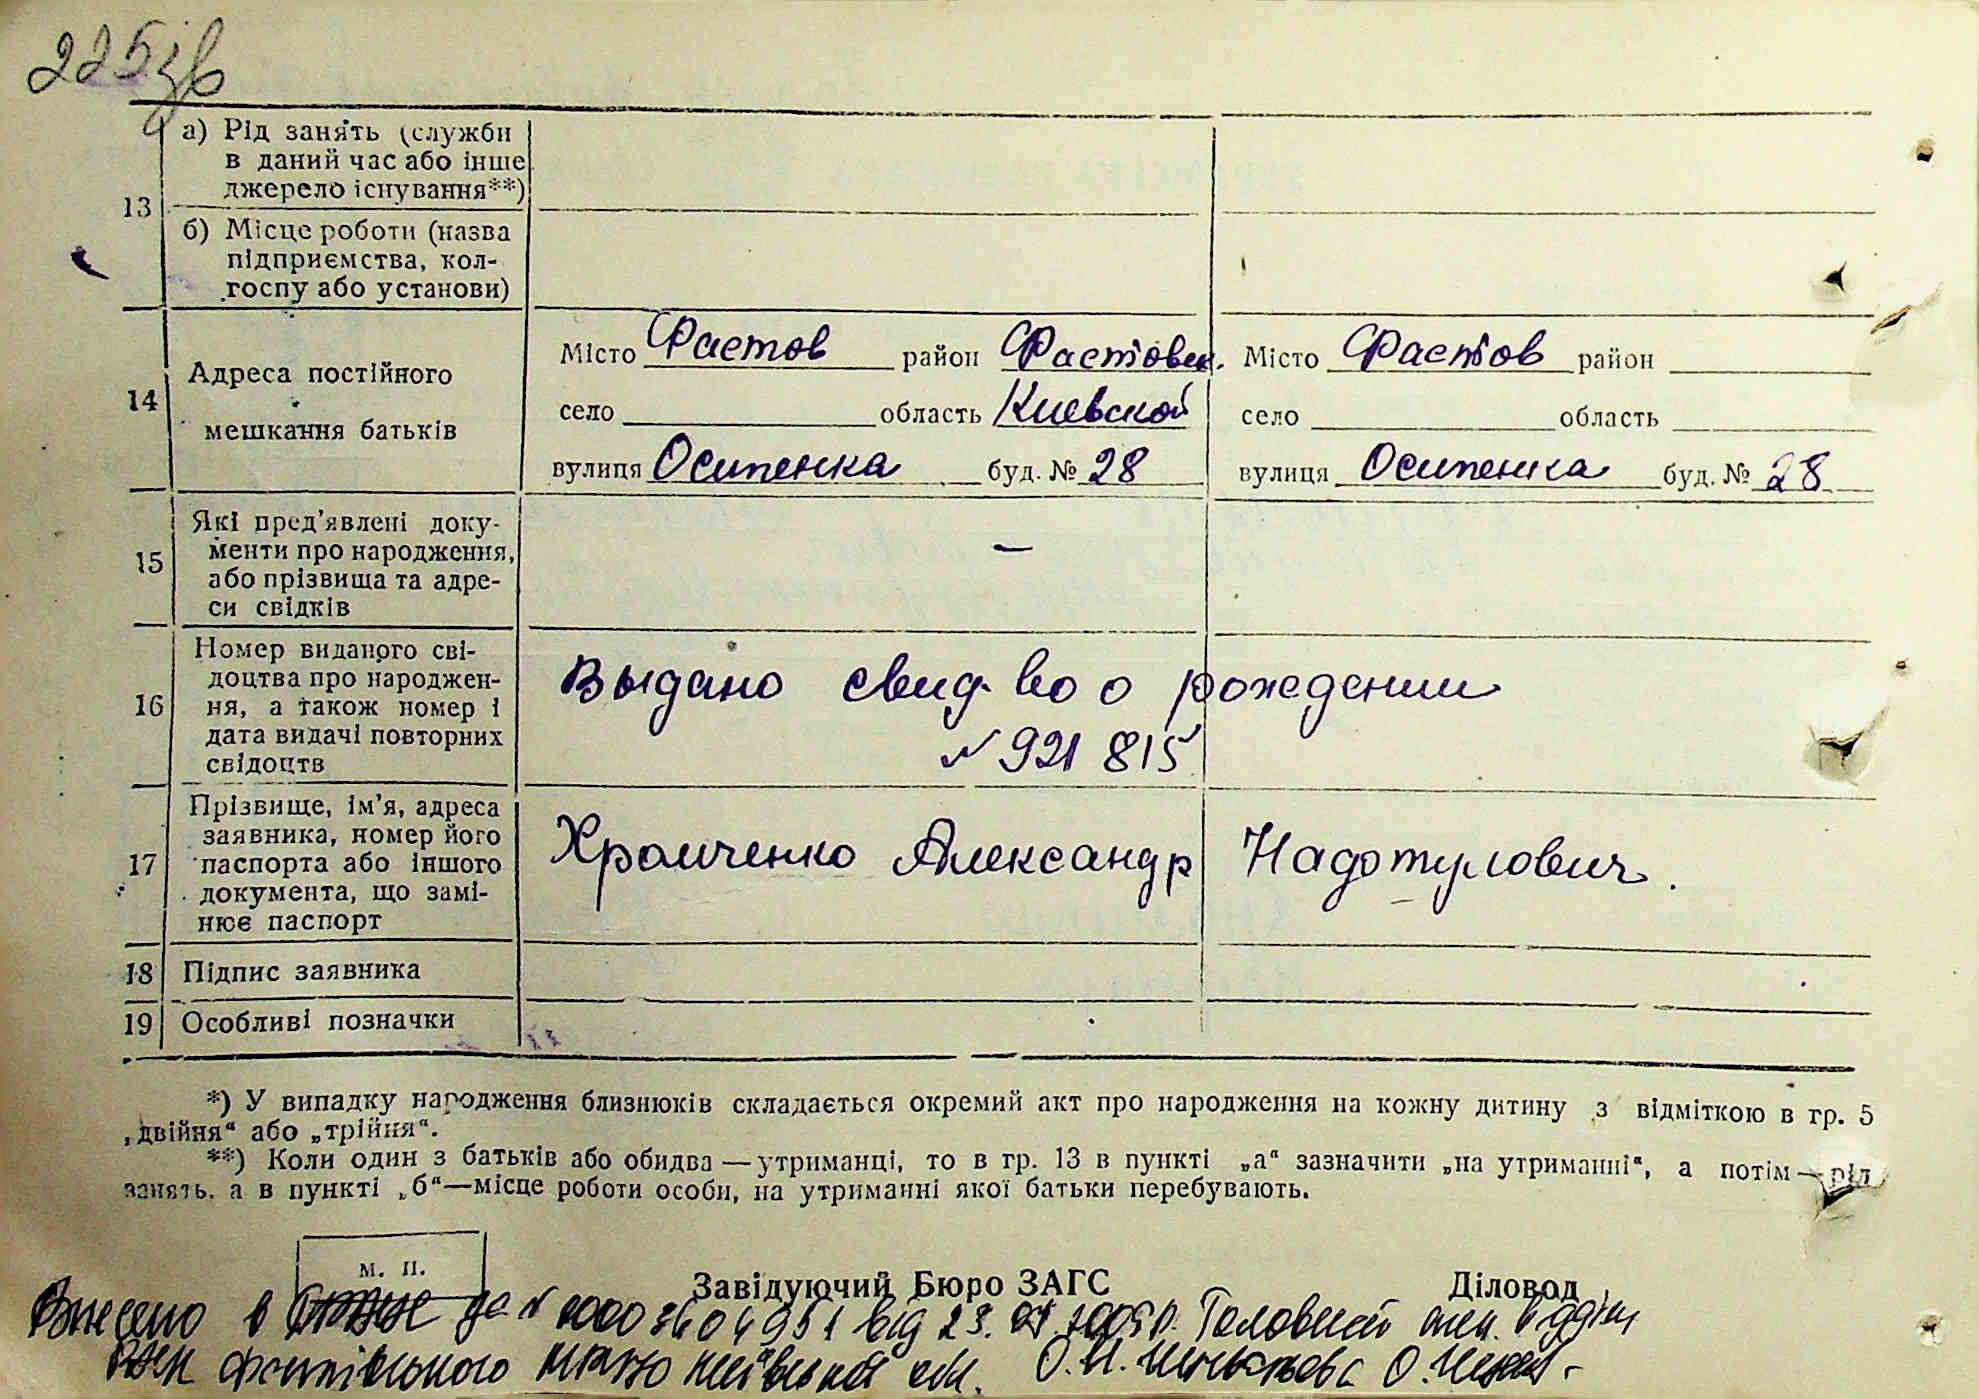 225зв
13 а) Рід занять (служби
в даний час або інше
джерело існування**)
б) Місце роботи (назва
підприємства, кол-
госпу або установи)
14 Адреса постійного
мешкання батьків
Місто Фастов район Фастовск. Місто Фастов район
село область Киевской село область
вулиця Осипенка буд. № 28 вулиця Осипенка буд. № 28
15 Які пред'явлені доку-
менти про народження,
або прізвища та адре-
си свідків
—
16 Номер виданого сві-
доцтва про народжен-
ня, а також номер і
дата видачі повторних
свідоцтв
Выдано свид-во о рождении
№ 921815
17 Прізвище, ім'я, адреса
заявника, номер його
паспорта або іншого
документа, що замі-
нює паспорт
Хромченко Александр Надотулович.
18 Підпис заявника
19 Особливі позначки
*) У випадку народження близнюків складається окремий акт про народження на кожну дитину з відміткою в гр. 5
„двійня“ або „трійня“.
**) Коли один з батьків або обидва — утриманці, то в гр. 13 в пункті „а“ зазначити „на утриманні“, а потім — рід
занять, а в пункті „б“—місце роботи особи, на утриманні якої батьки перебувають.
м. п.
Завідуючий Бюро ЗАГС Діловод
Внесено в за № від 23. Головний
Київської обл.